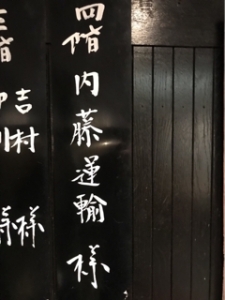 四階 内藤運輸 様
三階
吉村 様